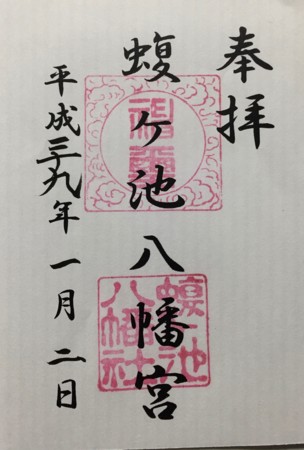 奉拝
蝮ヶ池八幡宮
平成二十九年一月二日
神璽
蝮池八幡社